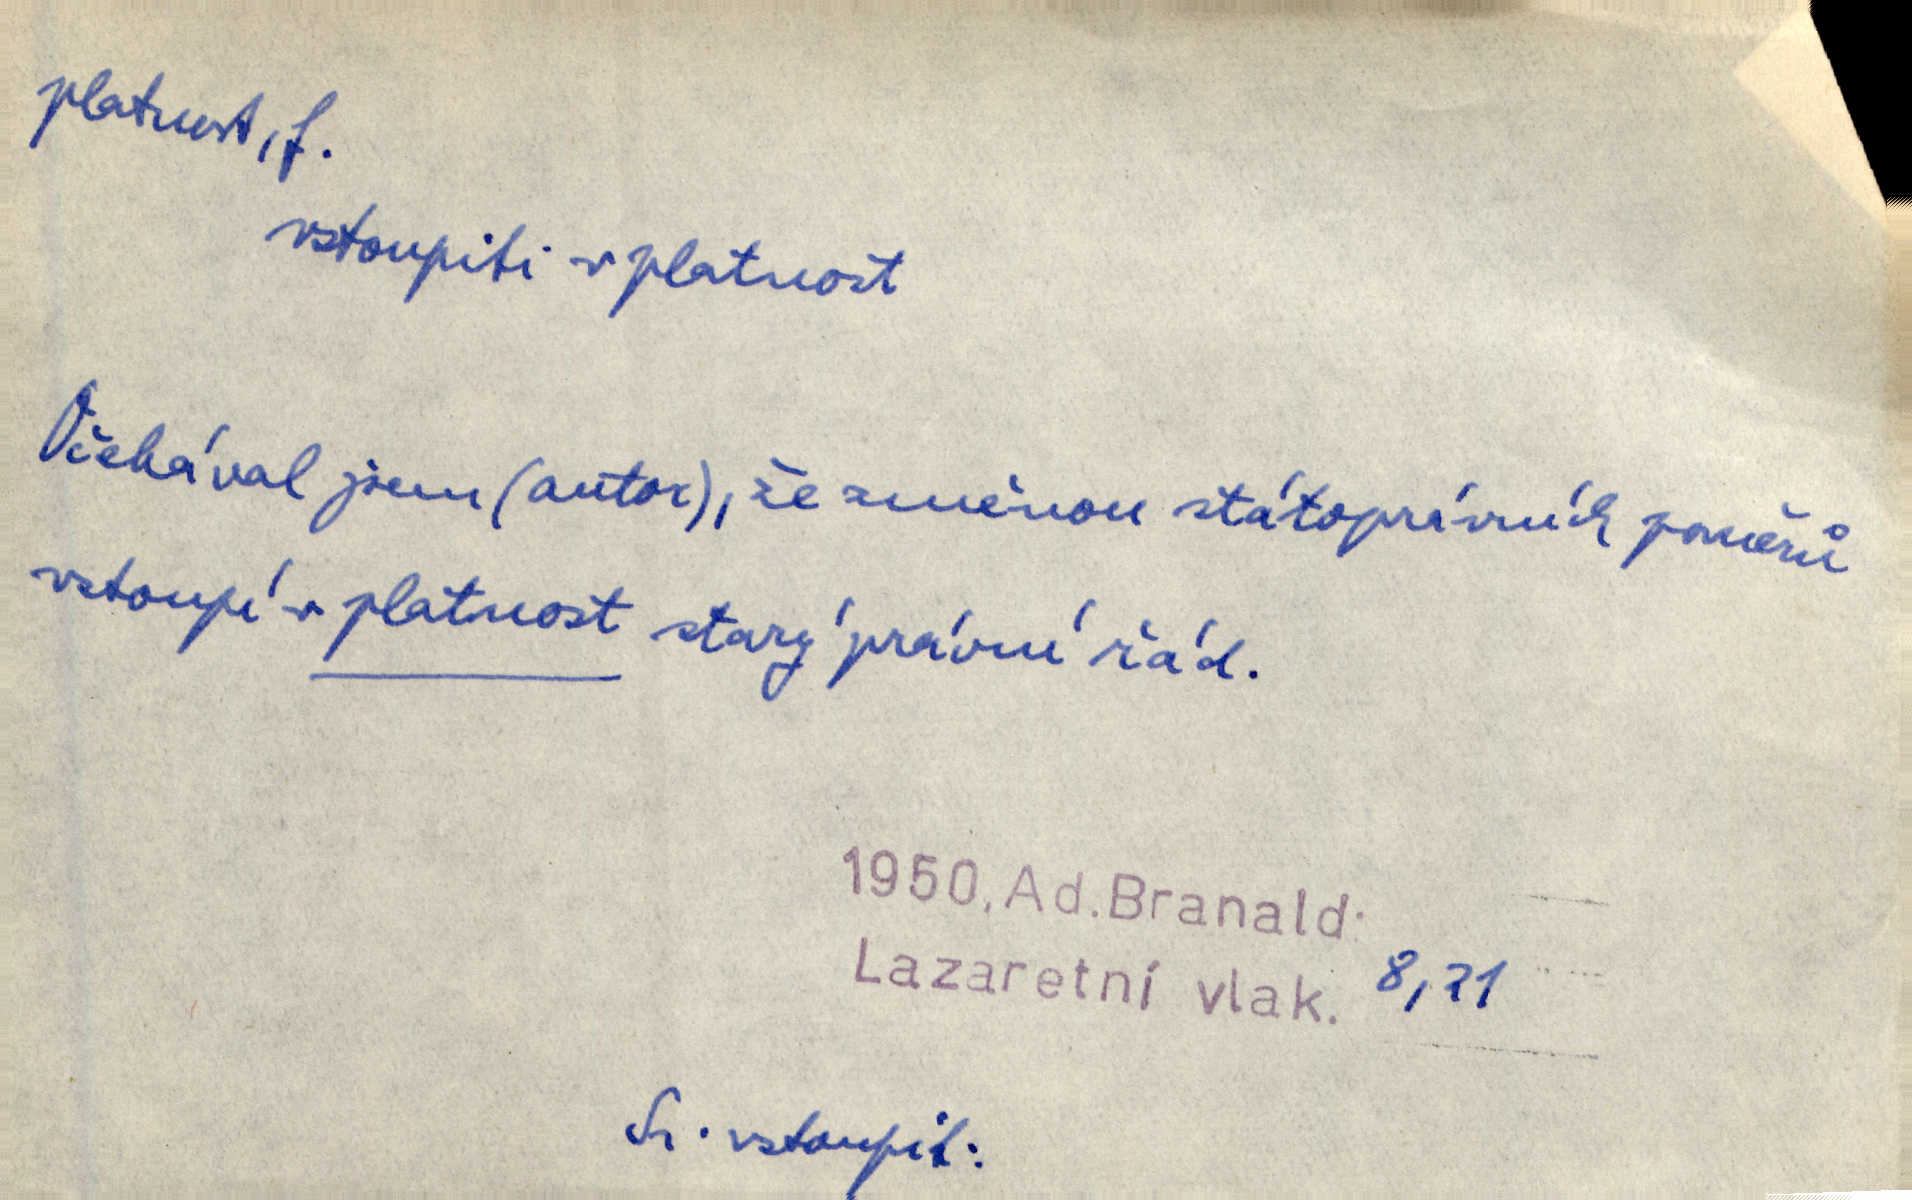 platnost, f.
vstoupiti v platnost
Očekával jsem (autor), že změnou státoprávních poměrů
vstoupí v platnost starý právní řád.
1950, Ad. Branald:
Lazaretní vlak. 8, 21
Sr. vstoupit: